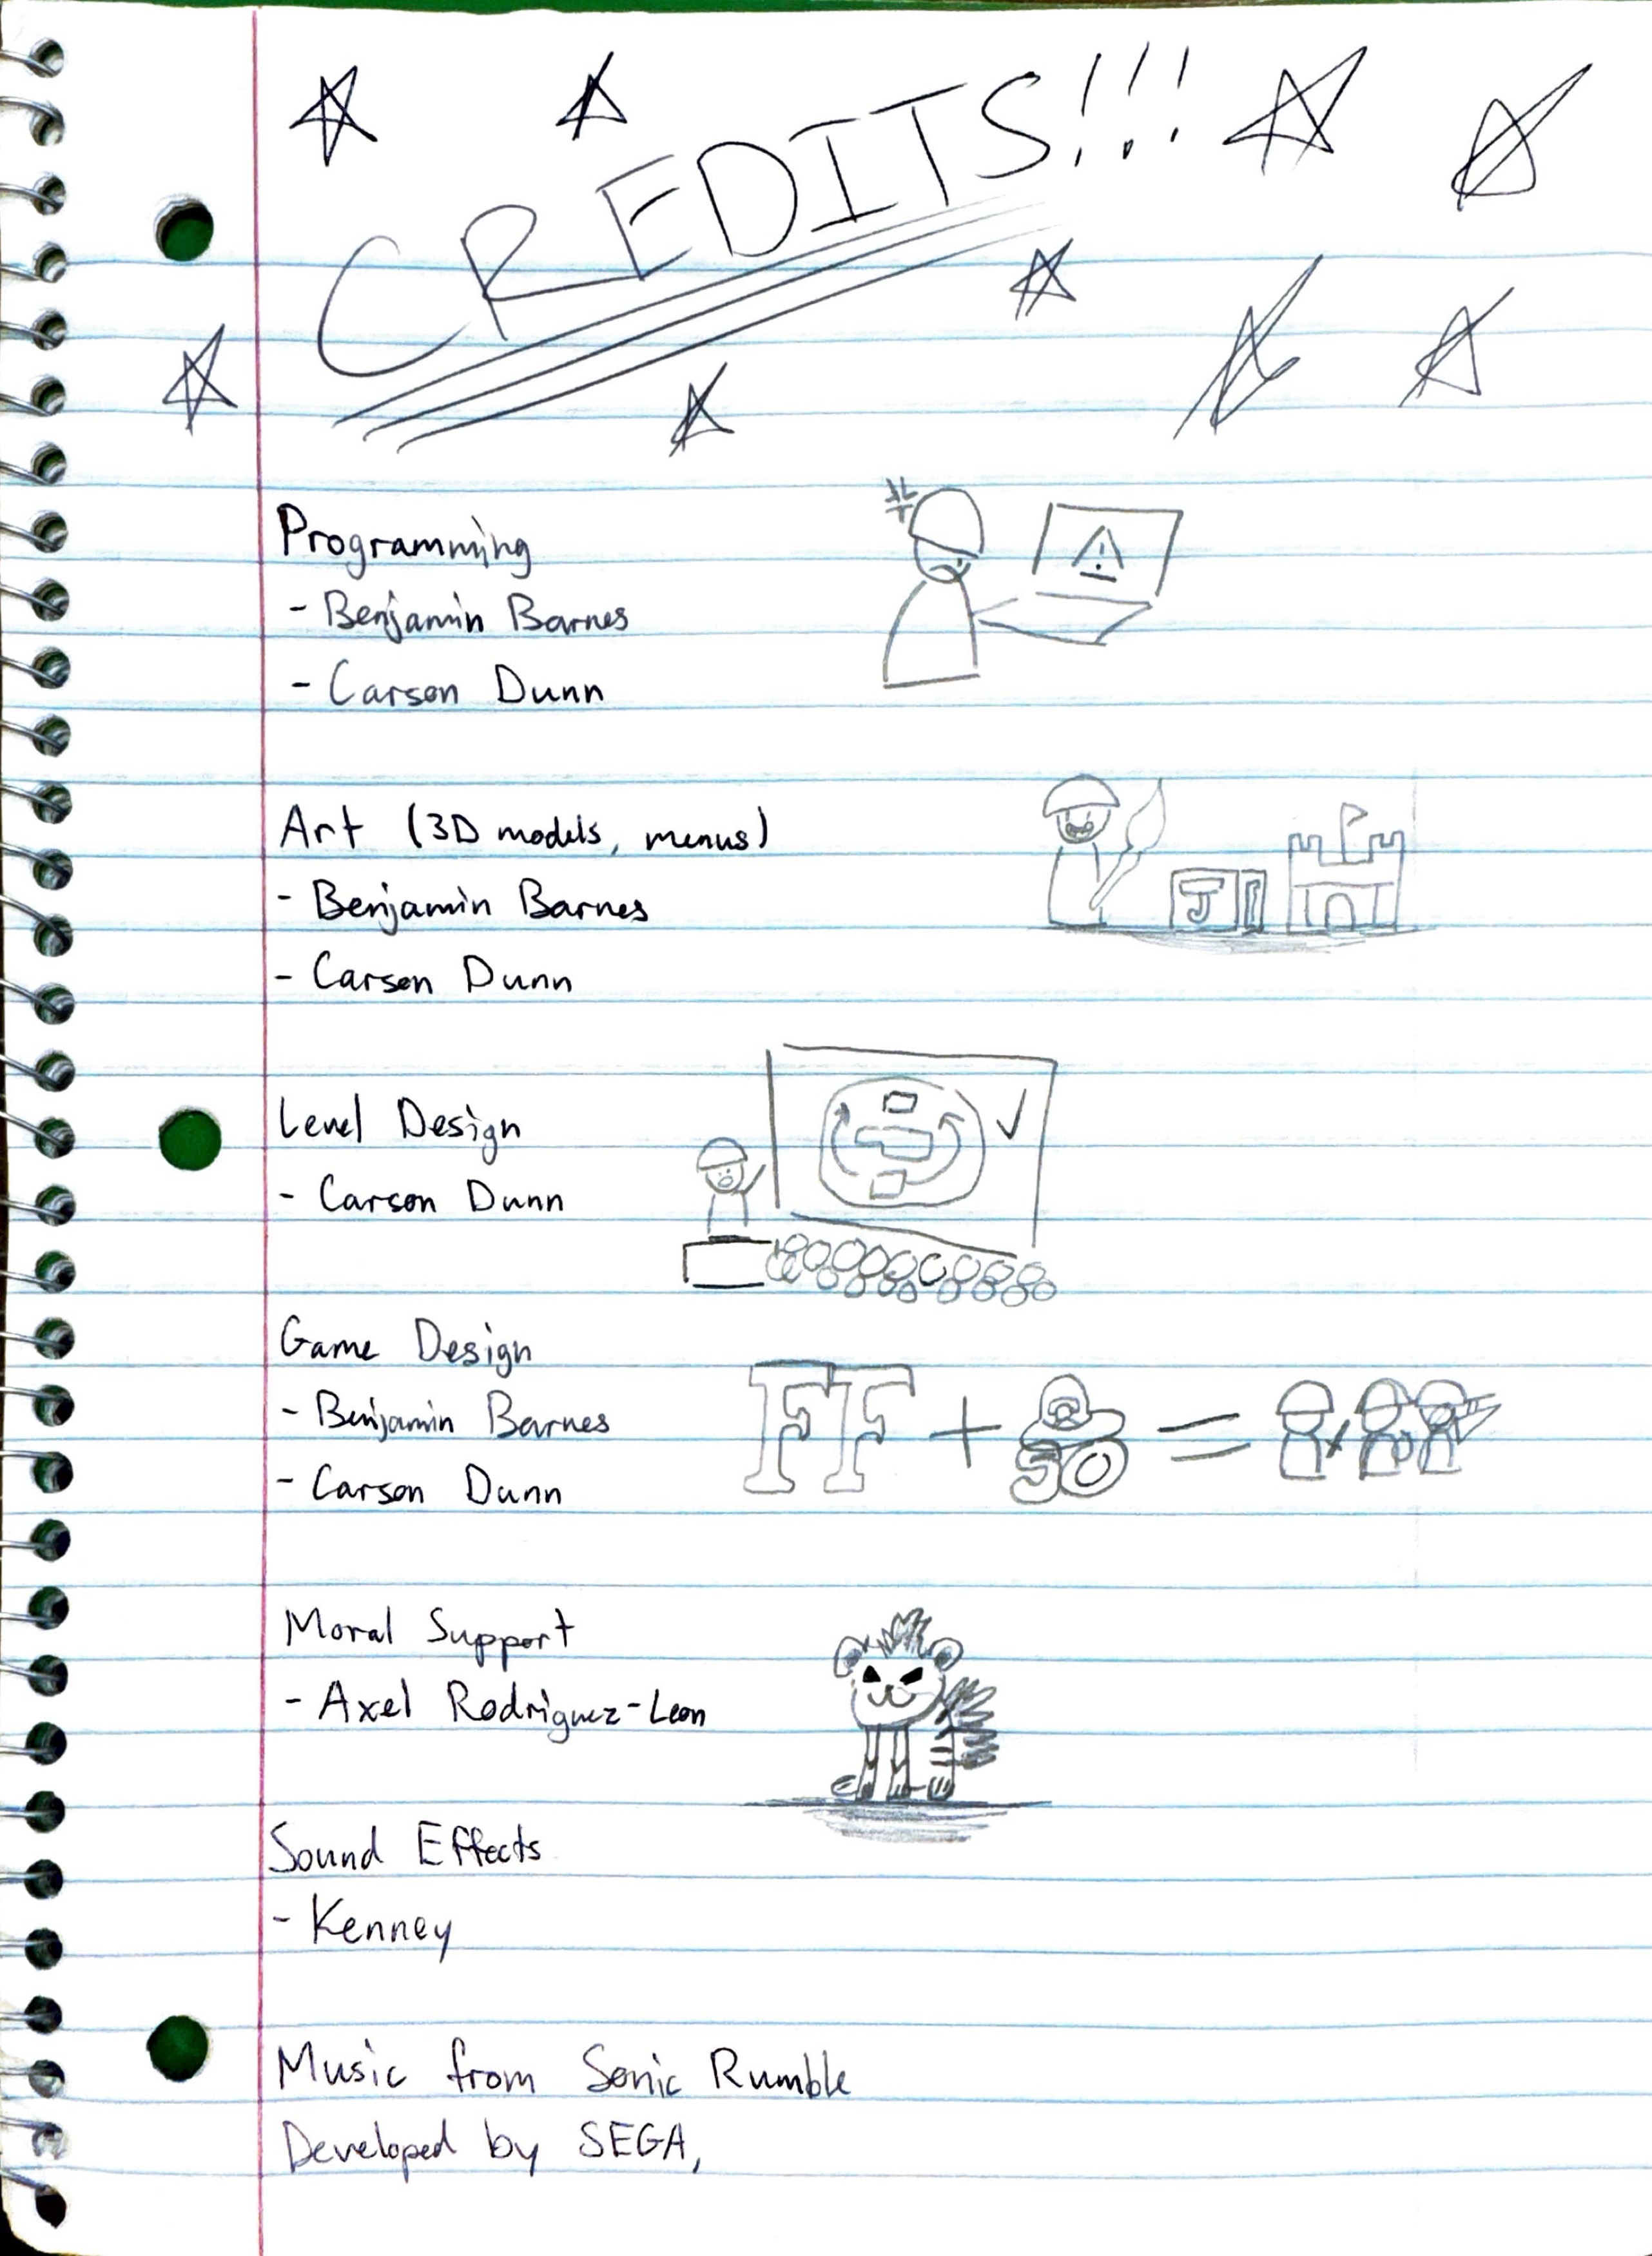 CREDITS!!!
Programming
- Benjamin Barnes
- Carson Dunn
Art (3D models, menus)
- Benjamin Barnes
- Carson Dunn
Level Design
- Carson Dunn
Game Design
- Benjamin Barnes
- Carson Dunn
FF + 50 =
Moral Support
- Axel Rodriguez-Leon
Sound Effects
- Kenney
Music from Sonic Rumble
Developed by SEGA,